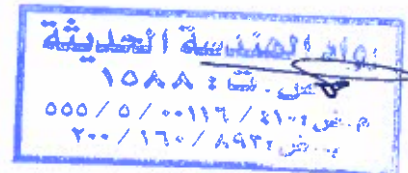 رواد الهندسة الحديثة
س.ت : ١٥٨٨
م.ض : ٤١٠ / ٠٠١١٦ / ٥ / ٥٥٥
ب.ض : ٨٩٣ / ١٦٠ / ٢٠٠